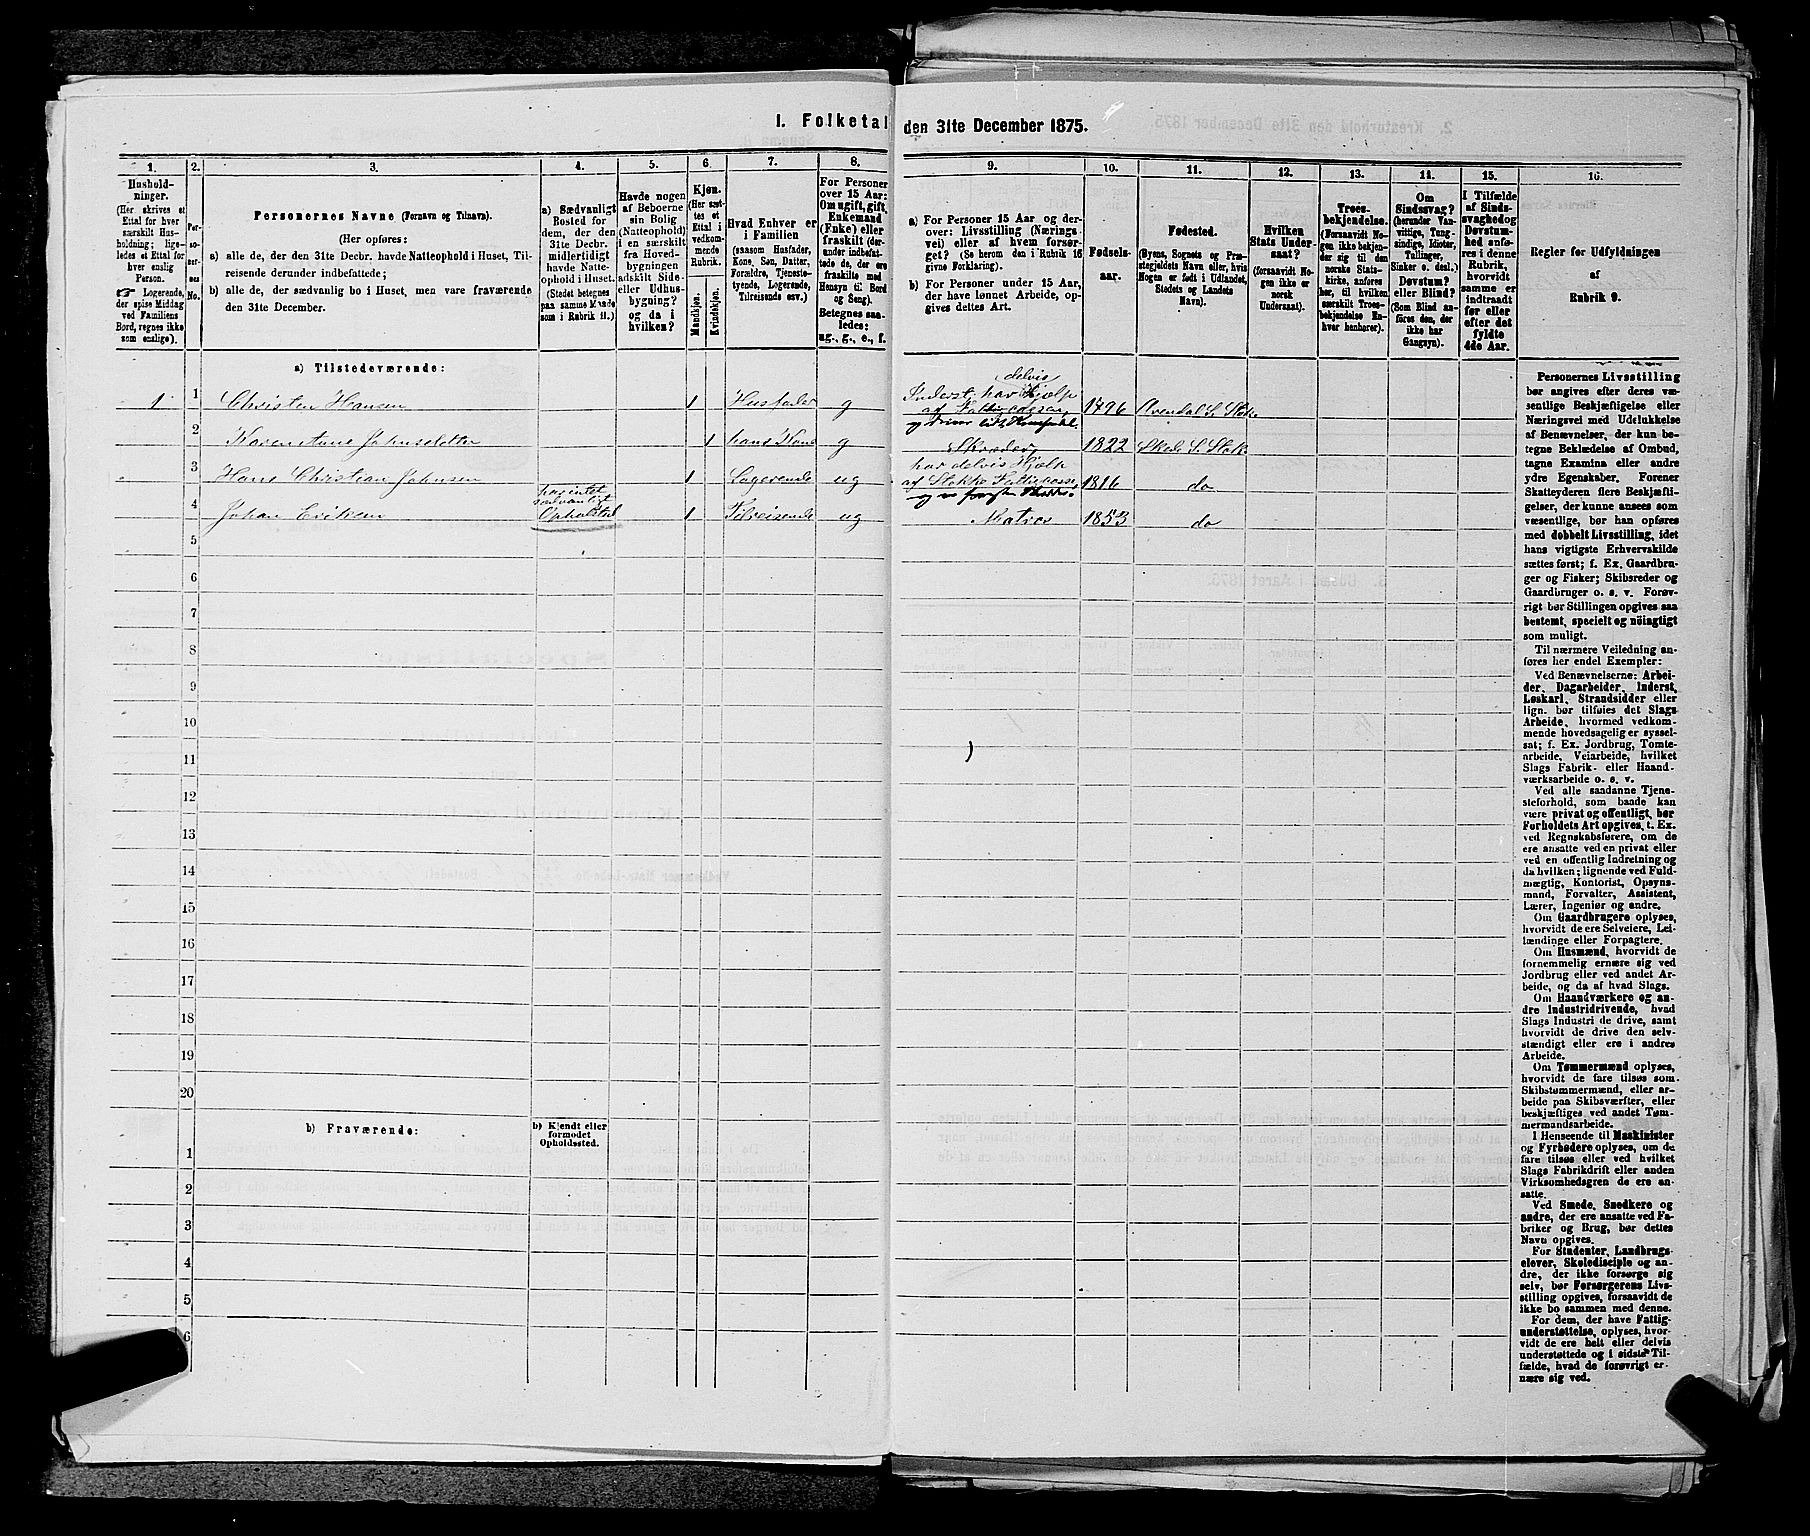 I. Folketal den 31te December 1875.
1.
2.
3.
4.
5.
6.
7.
8.
9.
10.
11.
12.
13.
14.
15.
16.
Hushold-
ninger.
(Her skrives et
Ettal for hver
særskilt Hus-
holdning; lige-
ledes et Ettal for
hver enslig
Person.
☞ Logerende,
der spise Middag
ved Familiens
Bord, regnes ikke
som enslige).
Per-
so-
ner-
nes
No.
Personernes Navne (Fornavn og Tilnavn).
(Her opføres:
a) alle de, der den 31te Decbr. havde Natteophold i Huset, Til-
reisende derunder indbefattede;
b) alle de, der sædvanlig bo i Huset, men vare fraværende
den 31te December.
a) Sædvanligt
Bosted for
dem, der den
31te Decbr.
midlertidigt
havde Natte-
ophold i Huset.
(Stedet betegnes
paa samme Maade
som i Rubrik 11.)
Havde nogen
af Beboerne
sin Bolig
(Natteophold)
i en særskilt
fra Hoved-
bygningen
adskilt Side-
eller Udhus-
bygning?
og da i
hvilken?
Kjøn.
(Her sæt-
tes et
Ettal i
vedkom-
mende
Rubrik.
Mandkjøn.
Kvindekjøn.
Hvad Enhver er
i Familien
(saasom Husfader,
Kone, Søn, Datter,
Forældre, Tjeneste-
tyende, Logerende,
Tilreisende osv.)
For Personer
over 15 Aar:
Om ugift, gift,
Enkemand
(Enke) eller
fraskilt (der-
under indbefat-
tede de, der ere
fraskilte med
Hensyn til Bord
og Seng).
Betegnes saa-
ledes:
ug., g., e., f.
a) For Personer 15 Aar og der-
over: Livsstilling (Nærings-
vei) eller af hvem forsør-
get? (Se herom den i Rubrik 16
givne Forklaring).
b) For Personer under 15 Aar,
der have lønnet Arbeide, op-
gives dettes Art.
Fødsels-
aar.
Fødested.
(Byens, Sognets og Præ-
stegjeldets Navn eller, hvis
Nogen er født i Udlandet,
Stedets og Landets
Navn).
Hvilken
Stats Under-
saat?
(forsaavidt No-
gen ikke er
norsk
Undersaat).
Troes-
bekjendelse.
(Forsaavidt No-
gen ikke bekjen-
der sig til den
norske Stats-
kirke, anføres
her, til hvilken
særskilt Troes-
bekjendelse En-
hver henhører).
Om
Sindssvag?
(herunder Van-
vittige, Tung-
sindige, Idioter,
Tullinger,
Sinker o. desl.)
Døvstum?
eller Blind?
(Som Blind an-
føres den, der
ikke har
Gangsyn).
I Tilfælde
af Sinds-
svaghed og
Døvstum-
hed anfø-
res i denne
Rubrik,
hvorvidt
samme er
indtraadt
før eller
efter det
fyldte
4de Aar.
Regler for Udfyldningen
af
Rubrik 9.
a) Tilstedeværende:
1 1 Christen Hansen 1 Husfader g Inderst, har delvis Hjælp
af Fattigcassen, 1796 Arendal S. Stok
2 Karen Anne Johnsdatter 1 hans Kone g 1822 Skede S. Stok
3 Hans Christian Johnsen 1 Logerende ug Skræder, har delvis Hjælp
af Stokke Fattigcasse 1816 do
4 Johan Eriksen har intet
sædvanligt
Opholdsted 1 Tilreisende ug Matros 1853 do
5
6
7
8
9
10
11
12
13
14
15
16
17
18
19
20
b) Fraværende:
b) Kjendt eller
formodet
Opholdssted.
1
2
3
4
5
6
Personernes Livsstilling
bør angives efter deres væ-
sentlige Beskjæftigelse eller
Næringsvei med Udelukkelse
af Benævnelser, der kun be-
tegne Beklædelse af Ombud,
tagne Examina eller andre
ydre Egenskaber. Forener
Skatteyderen flere Beskjæfti-
gelser, der kunne ansees som
væsentlige, bør han opføres
med dobbelt Livsstilling, idet
hans vigtigste Erhvervskilde
sættes først; f. Ex. Gaardbru-
ger og Fisker; Skibsreder og
Gaardbruger o. s. v. Forøv-
rigt bør Stillingen opgives saa
bestemt, specielt og nøiagtigt
som muligt.
Til nærmere Veiledning an-
føres her endel Exempler:
Ved Benævnelserne: Arbei-
der, Dagarbeider, Inderst,
Løskarl, Strandsidder eller
lign. bør tilføies det Slags
Arbeide, hvormed vedkom-
mende hovedsagelig er syssel-
sat; f. Ex. Jordbrug, Tomte-
arbeide, Veiarbeide, hvilket
Slags Fabrik- eller Haand-
værksarbeide o. s. v.
Ved alle saadanne Tjene-
steforhold, som baade kan
være privat og offentligt, bør
Forholdets Art opgives, t. Ex.
ved Regnskabsførere, om de
ere ansatte ved en privat eller
ved en offentlig Indretning og
da hvilken; lignende ved Fuld-
mægtig, Kontorist, Opsyns-
mand, Forvalter, Assistent,
Lærer, Ingeniør og andre.
Om Gaardbrugere oplyses,
hvorvidt de ere Selveiere, Lei-
lændinge eller Forpagtere.
Om Husmænd, hvorvidt de
fornemmelig ernære sig ved
Jordbrug eller ved andet Ar-
beide, og da af hvad Slags.
Om Haandværkere og an-
dre Industridrivende, hvad
Slags Industri de drive, samt
hvorvidt de drive den selv-
stændigt eller ere i andres
Arbeide.
Om Tømmermænd oplyses,
hvorvidt de fare tilsøs som
Skibstømmermænd, eller ar-
beide paa Skibsværfter, eller
beskjæftiges ved andet Tøm-
mermandsarbeide.
I Henseende til Maskinister
og Fyrbødere oplyses, om de
fare tilsøs eller ved hvilket
Slags Fabrikdrift eller anden
Virksomhedsgren de ere an-
satte.
Ved Smede, Snedkere og
andre, der ere ansatte ved Fa-
briker og Brug, bør dettes
Navn opgives.
For Studenter, Landbrugs-
elever, Skoledisciple og an-
dre, der ikke forsørge sig
selv, bør Forsørgerens Livs-
stilling opgives, forsaavidt de
ikke bo sammen med denne.
For dem, der have Fattig-
understøttelse, oplyses, hvor-
vidt de ere helt eller delvis
understøttede og i sidste Til-
fælde, hvad de forøvrigt er-
nære sig ved.